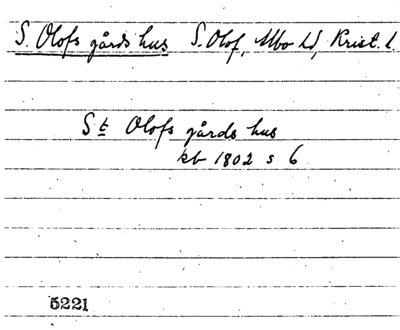 S. Olofs gårds hus S. Olof, Albo hd, Krist. l.
St Olofs gårds hus
kb 1802 s 6
5221